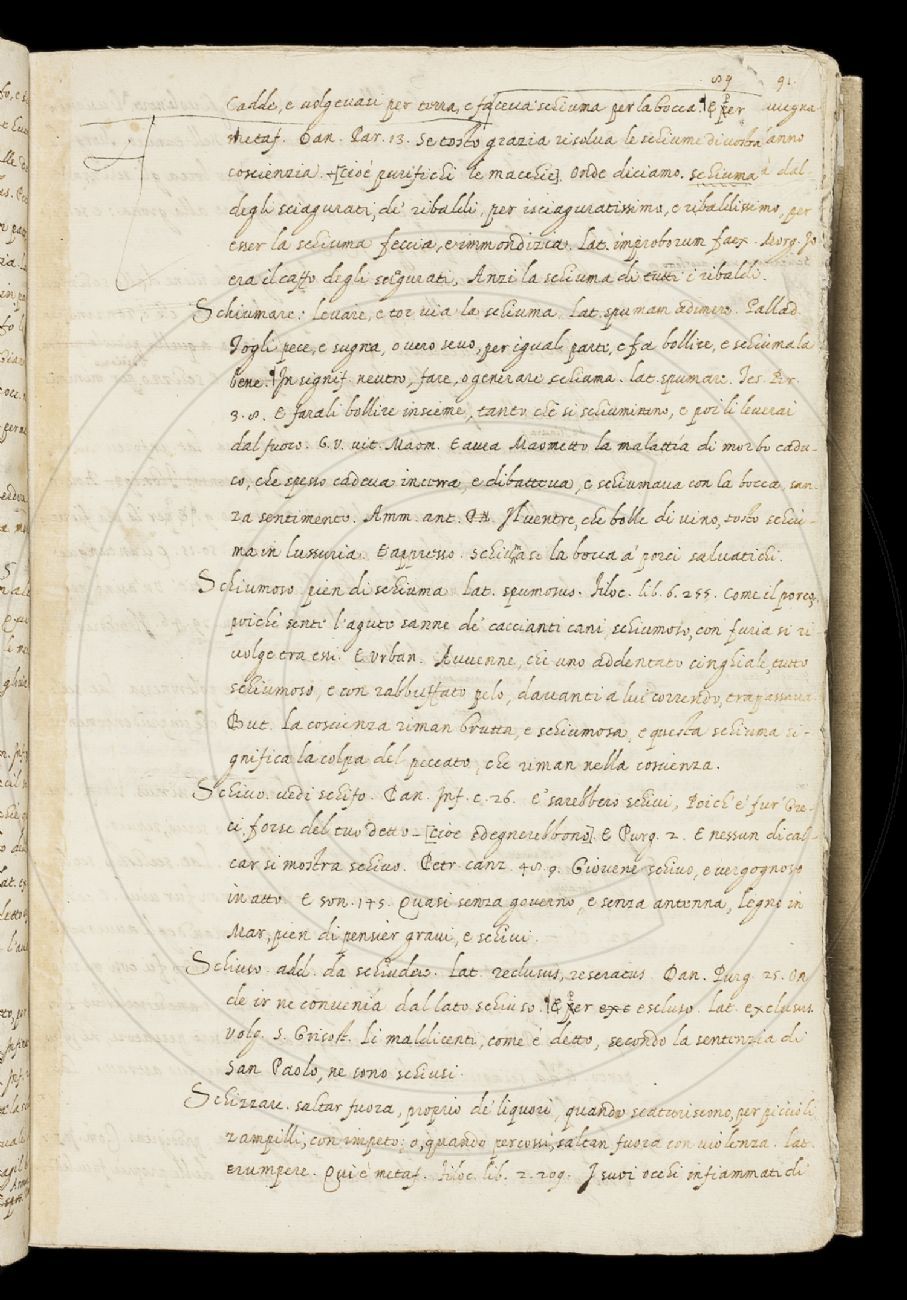 89 91.
Cadde, e volgevasi per terra, e faceva schiuma per la bocca. ¶ E per
metaf. Dan. Par. 13. Se tosto grazia risolva le schiume di vostra
coscienzia. [cioè purifichi le macchie]. Onde diciamo. schiuma
degli sciagurati, de' ribaldi, per isciaguratissimo, e ribaldissimo, per
esser la schiuma feccia, e immondizia. Lat. improborum faex. Morg. Io
era il caffo degli scigurati, Anzi la schiuma di tutti i ribaldi.
Schiumare: levare, e tor via la schiuma. Lat. spumam adimere. Pallad.
Togli pece, e sugna, o vero sevo, per iguali parti, e fa bollire, e schiumala
bene. ¶ In signif. neutro, fare, o generare schiuma. lat. spumare. Tes. Pov.
3. 8. E farali bollire insieme, tanto che si schiumino, e poi li leverai
dal fuoco. G. V. vit. Maom. E avea Maometto la malattia di morbo cadu-
co, che spesso cadeva in terra e dibatteva, e schiumava con la bocca, san-
za sentimento. Amm. ant. Il ventre, che bolle di vino, tosto schiu-
ma in lussuria. E appresso. Schiumasi la bocca a' porci salvatichi.
Schiumoso. pien di schiuma. Lat. spumosus. Filoc. lib. 6. 255. Come il porco,
poichè sente l'agute sanne de' caccianti cani, schiumoso, con furia si ri
volge tra essi. E Urban. Avvenne, che uno addentato cinghiale, tutto
schiumoso, e con rabbuffato pelo, davanti a lui correndo, trapassava.
But. La coscienza riman brutta, e schiumosa, e questa schiuma si-
gnifica la colpa del peccato, che riman nella coscienza.
Schivo. vedi schifo. Dan. Inf. c. 26. E' sarebbero schivi, Poich' e' fur' Gre-
ci, forse del tuo detto. [cioè sdegnerebbono]. E Purg. 2. E nessun di cal-
car si mostra schivo. Petr. canz. 48. 9. Giovene schivo, e vergognoso
in atto. E son. 145. Quasi senza governo, e senza antenna, Legno in
Mar, pien di pensier gravi, e schivi.
Schiuso. add. da schiudere. Lat. reclusus, reseratus. Dan. Purg. 25. On
de ir ne convenia dal lato schiuso. ¶ E per escluso. Lat. exclusus.
volg. S. Grisost. Li maldicenti, come è detto, secondo la sentenzia di
San Paolo, ne sono schiusi.
Schizzare. saltar fuora, proprio de' liquori, quando scaturiscono, per piccioli
zampilli, con impeto; o, quando percossi, saltan fuora con violenza. Lat.
erumpere. Qui è metaf. Filoc. lib. 2. 209. I suoi occhi infiammati di